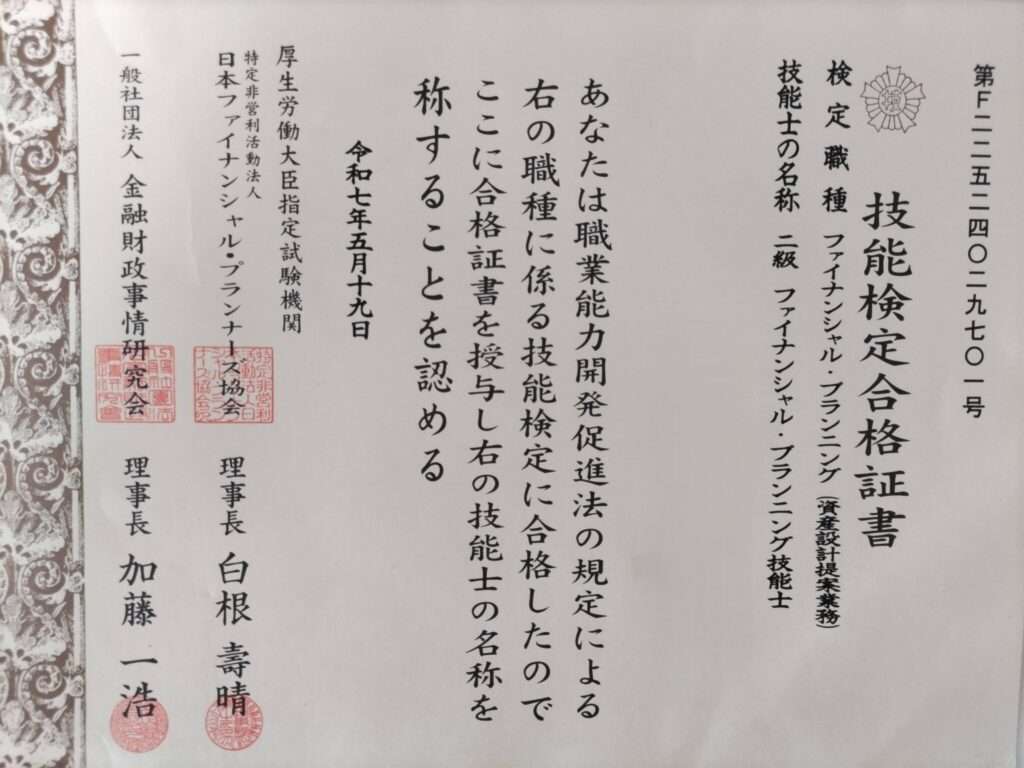 第F二二五二四〇二九七〇一号
技能検定合格証書
検定職種 ファイナンシャル・プランニング(資産設計提案業務)
技能士の名称 二級 ファイナンシャル・プランニング技能士
あなたは職業能力開発促進法の規定による
右の職種に係る技能検定に合格したので
ここに合格証書を授与し右の技能士の名称を
称することを認める
令和七年五月十九日
厚生労働大臣指定試験機関
特定非営利活動法人
日本ファイナンシャル・プランナーズ協会 理事長 白根 壽晴
一般社団法人 金融財政事情研究会 理事長 加藤 一浩